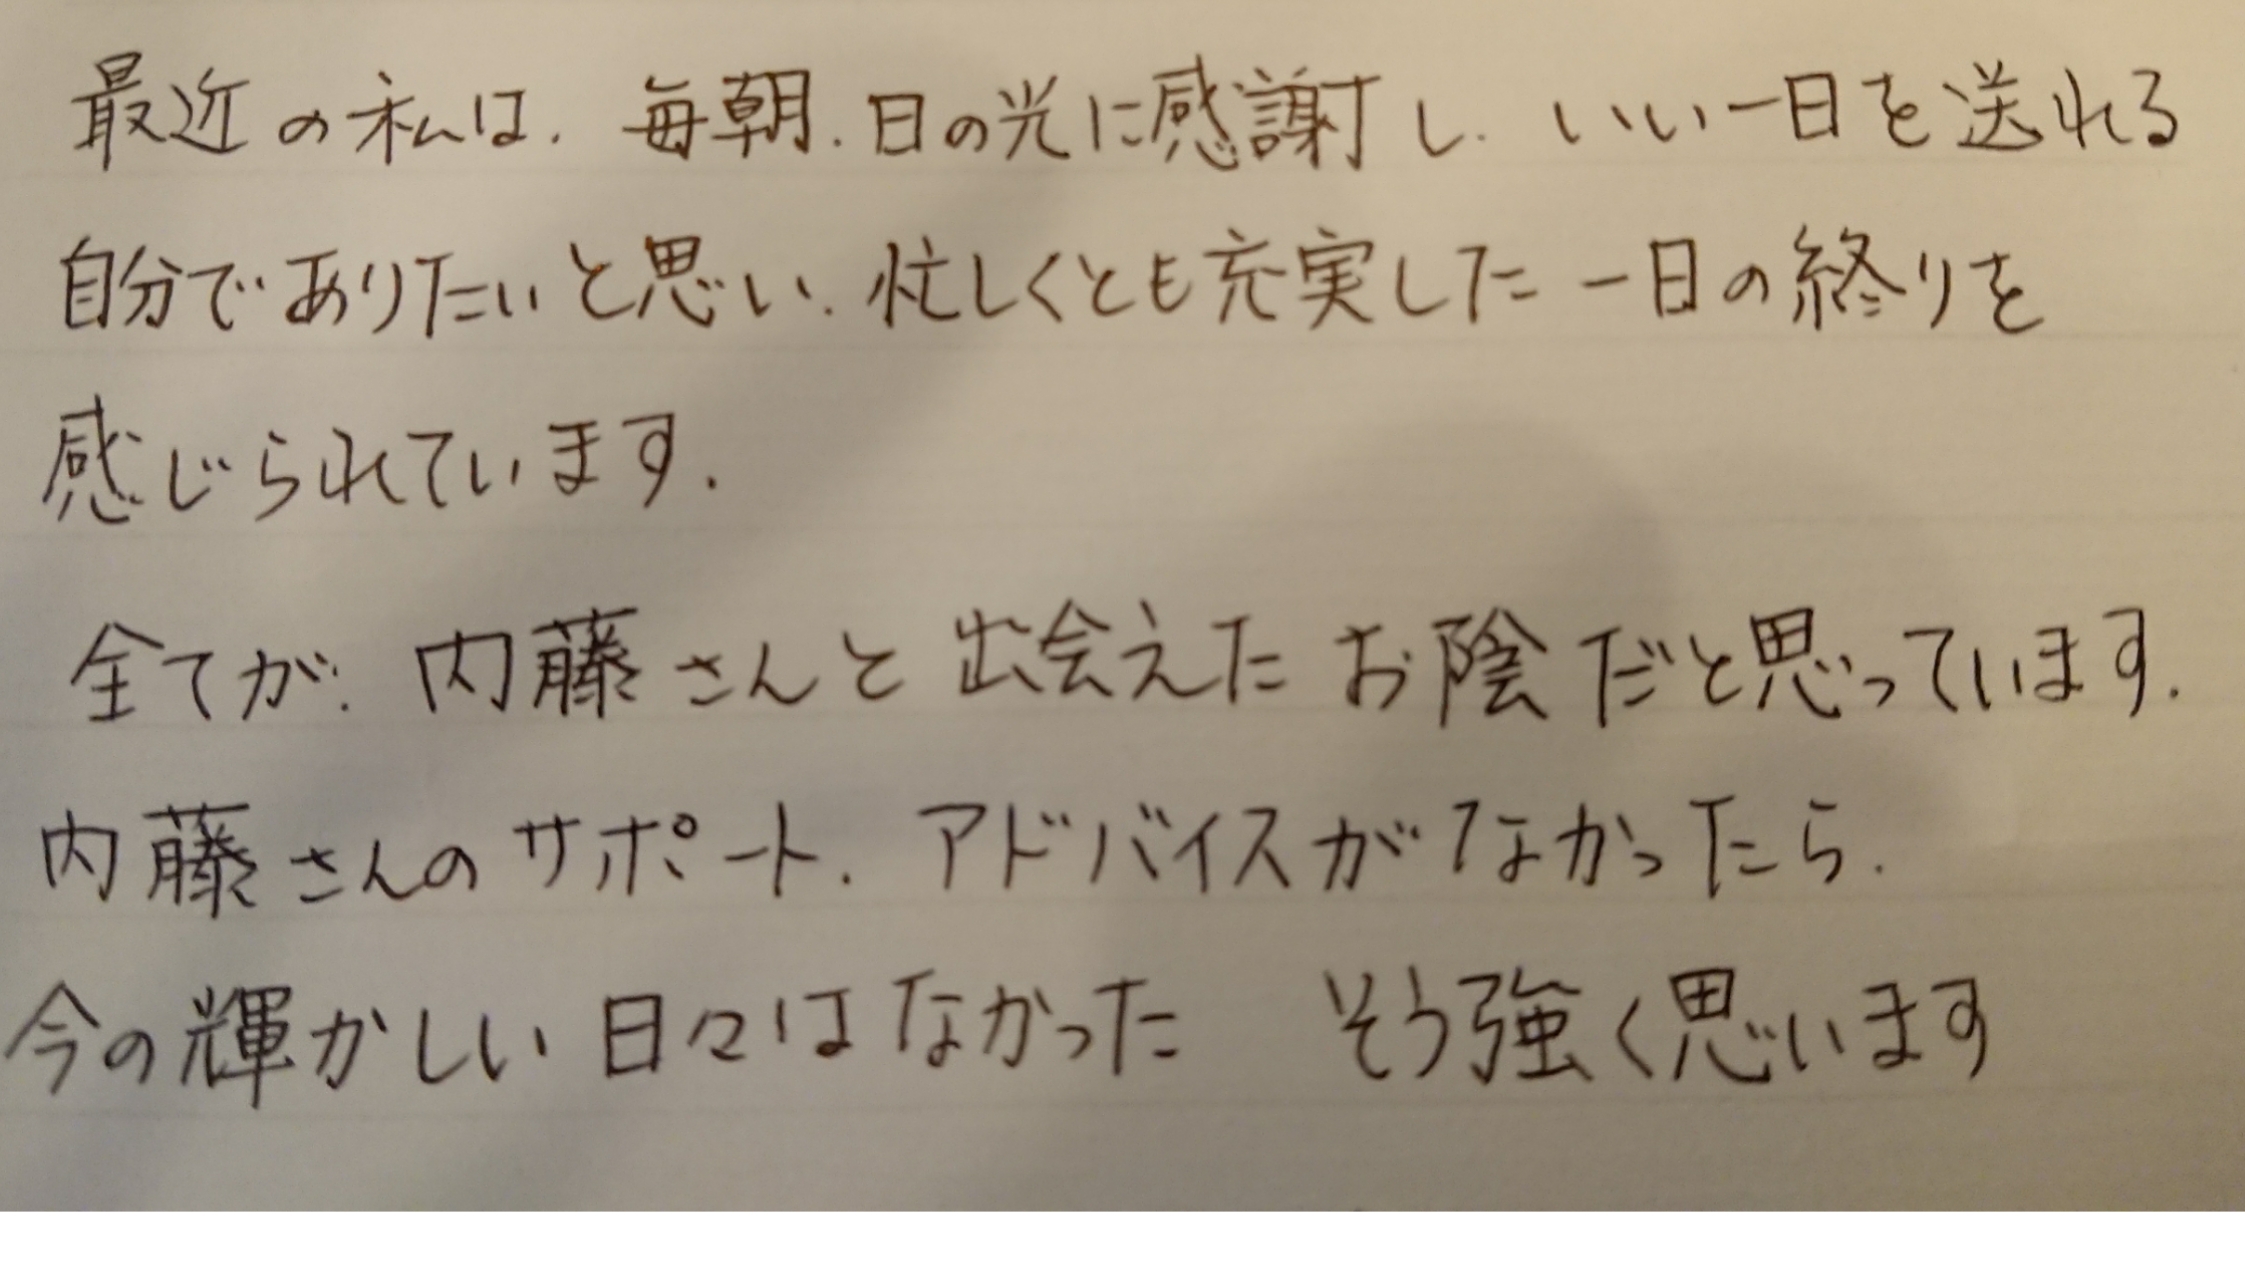 最近の私は、毎朝、日の光に感謝し、いい一日を送れる
自分でありたいと思い、忙しくとも充実した一日の終りを
感じられています。
全てが、内藤さんと出会えたお陰だと思っています。
内藤さんのサポート、アドバイスがなかったら、
今の輝かしい日々はなかった　そう強く思います